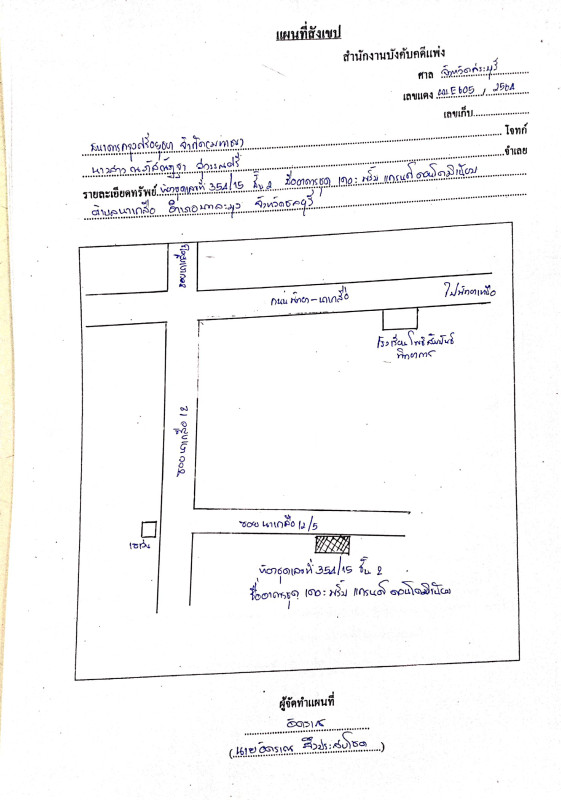 แผนที่สังเขป
สำนักงานบังคับคดีแพ่ง
ศาล จังหวัดสระบุรี
เลขแดง ผบE605 / 2564
เลขเก็บ
ธนาคารกรุงศรีอยุธยา จำกัด(มหาชน) โจทก์
นางสาว สุวรรณศรี จำเลย
รายละเอียดทรัพย์ ห้องชุดเลขที่ 354/15 ชั้น 2 ชื่ออาคารชุด เดอะ พริ้ม แกรนด์ คอนโดมิเนียม
ตำบลนาเกลือ อำเภอบางละมุง จังหวัดชลบุรี
ถนนพัทยา-นาเกลือ
ไปพัทยาเหนือ
โรงเรียนโพธิสัมพันธ์
พิทยาคาร
ซอยนาเกลือ 12
ซอยนาเกลือ 12/5
เซเว่น
ห้องชุดเลขที่ 354/15 ชั้น 2
ชื่ออาคารชุด เดอะ พริ้ม แกรนด์ คอนโดมิเนียม
ผู้จัดทำแผนที่
(นาย)